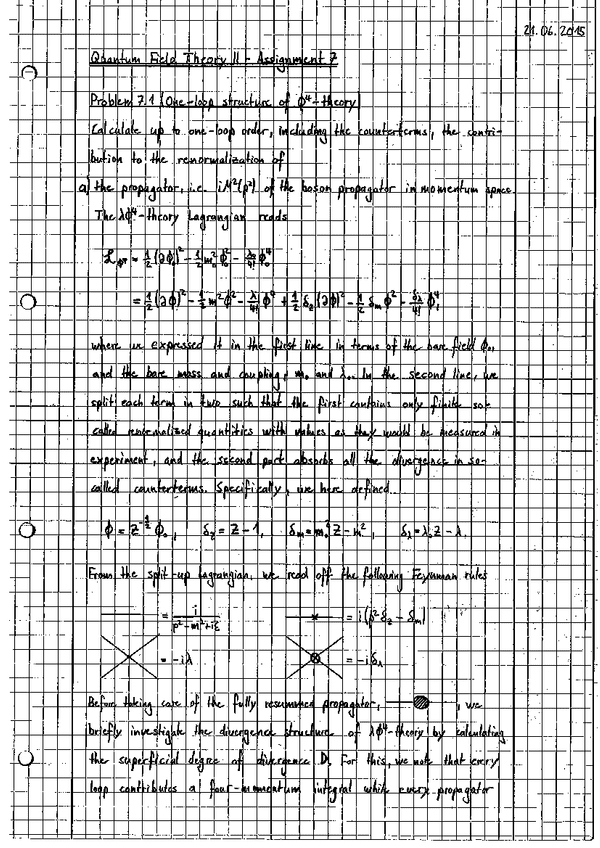 21.06.2015
Quantum Field Theory II - Assignment 7
Problem 7.1 (One-loop structure of ϕ⁴-theory)
Calculate up to one-loop order, including the counterterms, the contri-
bution to the renormalization of
a) the propagator, i.e. iM²(p²) of the boson propagator in momentum space.
The λϕ⁴-theory Lagrangian reads
ℒ_ϕ⁴ = ½(∂ϕ₀)² - ½m₀²ϕ₀² - λ₀/4! ϕ₀⁴
= ½(∂ϕ)² - ½m²ϕ² - λ/4! ϕ⁴ + ½δ_Z(∂ϕ)² - ½δ_mϕ² - δ_λ/4! ϕ⁴,
where we expressed it in the first line in terms of the bare field ϕ₀,
and the bare mass and coupling, m₀ and λ₀. In the second line, we
split each term in two such that the first contains only finite so-
called renormalized quantities with values as they would be measured in
experiment, and the second part absorbs all the divergence in so-
called counterterms. Specifically, we here defined
ϕ = Z^{-½}ϕ₀, δ_Z = Z - 1, δ_m = m₀²Z - m², δ_λ = λ₀Z - λ.
From the split-up Lagrangian, we read off the following Feynman rules
= i/(p²-m²+iε) = i(p²δ_Z - δ_m)
= -iλ = -iδ_λ
Before taking care of the fully resummed propagator, , we
briefly investigate the divergence structure of λϕ⁴-theory by calculating
the superficial degree of divergence D. For this, we note that every
loop contributes a four-momentum integral while every propagator